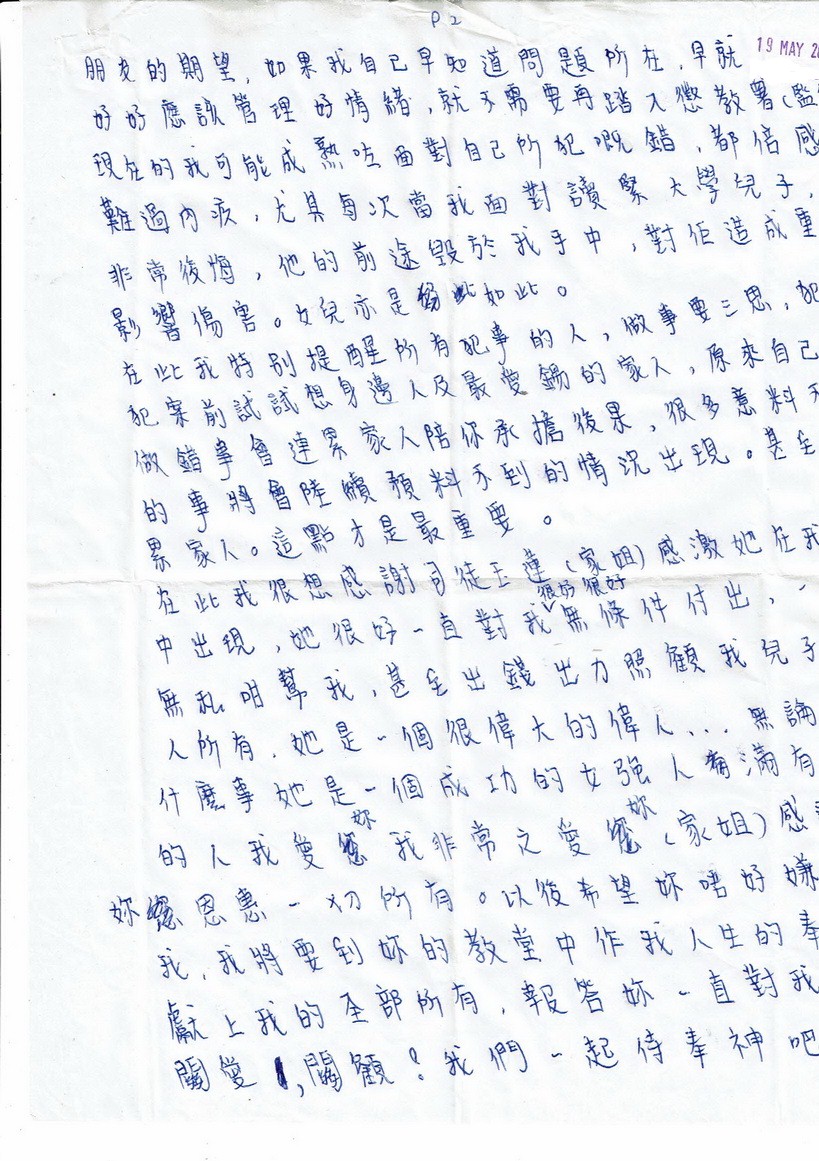 P 2
19 MAY 2
朋友的期望，如果我自己早知道問題所在，早就
好好應該管理好情緒，就不需要再踏入懲教署（監
現在的我可能成熟咗面對自己所犯嘅錯，都倍感
難過內疚，尤其每次當我面對讀緊大學兒子，
非常後悔，他的前途毀於我手中，對佢造成重
影響傷害。女兒亦是如此。
在此我特別提醒所有犯事的人，做事要三思，犯
犯案前試試想身邊人及最愛錫的家人，原來自己
做錯事會連累家人陪你承擔後果，很多意料不
的事將會陸續預料不到的情況出現。甚至
累家人。這點才是最重要。
在此我很想感謝司徒玉蓮（家姐）感激她在我
中出現，她很好一直對我很好很好無條件付出，一
無私咁幫我，甚至出錢出力照顧我兒子
人所有，她是一個很偉大的偉人... 無論
什麼事她是一個成功的女強人滿有
的人我愛妳我非常之愛妳（家姐）感
妳恩惠一切所有。以後希望妳唔好嫌
我，我將要到妳的教堂中作我人生的奉
獻上我的全部所有，報答妳一直對我
關愛，關顧！我們一起侍奉神吧